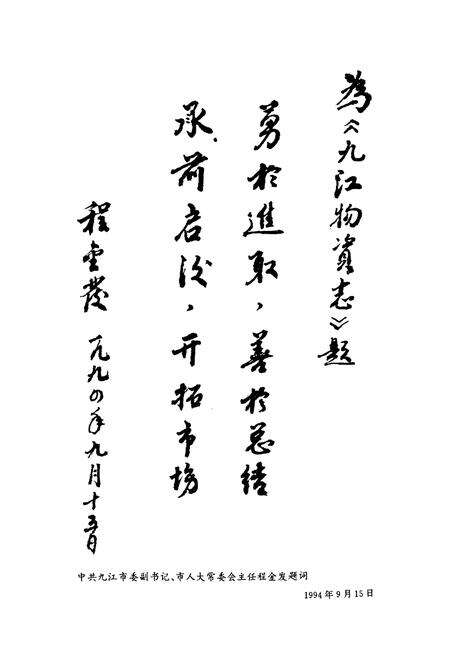 為《九江物資志》題
勇於進取，善於总结
承前启後，开拓市場
程金发 一九九四年九月十五日
中共九江市委副书记、市人大常委会主任程金发题词
1994年9月15日